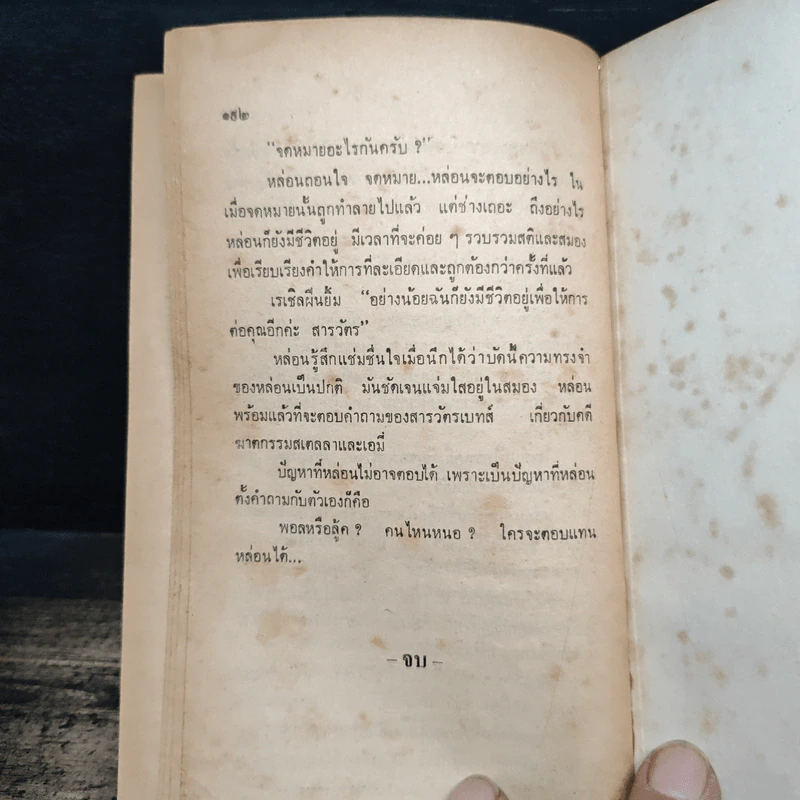 ๑๕๒
"จดหมายอะไรกันครับ ?"
หล่อนถอนใจ จดหมาย...หล่อนจะตอบอย่างไร ใน
เมื่อจดหมายนั้นถูกทำลายไปแล้ว แต่ช่างเถอะ ถึงอย่างไร
หล่อนก็ยังมีชีวิตอยู่ มีเวลาที่จะค่อย ๆ รวบรวมสติและสมอง
เพื่อเรียบเรียงคำให้การที่ละเอียดและถูกต้องกว่าครั้งที่แล้ว
เรเชิลฝืนยิ้ม "อย่างน้อยฉันก็ยังมีชีวิตอยู่เพื่อให้การ
ต่อคุณอีกค่ะ สารวัตร"
หล่อนรู้สึกแช่มชื่นใจเมื่อนึกได้ว่าบัดนี้ความทรงจำ
ของหล่อนเป็นปกติ มันชัดเจนแจ่มใสอยู่ในสมอง หล่อน
พร้อมแล้วที่จะตอบคำถามของสารวัตรเบทส์ เกี่ยวกับคดี
ฆาตกรรมสเตลลาและเอมี่
ปัญหาที่หล่อนไม่อาจตอบได้ เพราะเป็นปัญหาที่หล่อน
ตั้งคำถามกับตัวเองก็คือ
พอลหรือลู้ค ? คนไหนหนอ ? ใครจะตอบแทน
หล่อนได้...
- จบ -